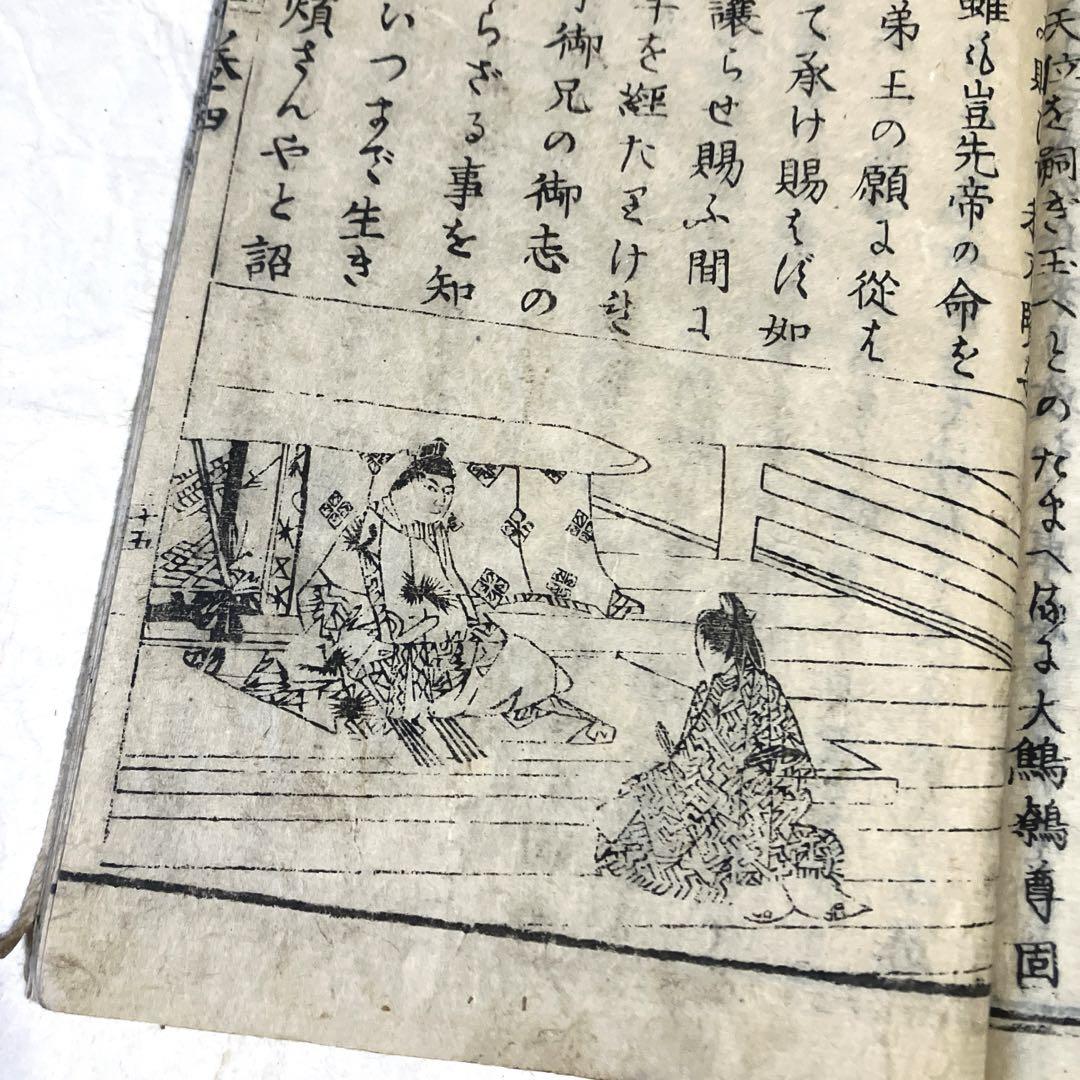 天位を嗣ぎ玉へとのたまへるに大鷦鷯尊固
雖も豈先帝の命を
弟王の願に從は
て承け賜はず如
讓らせ賜ふ間に
を經たまひけれ
御兄の御志の
らざる事を知
いつまで生き
煩さんやと詔
巻四
十五